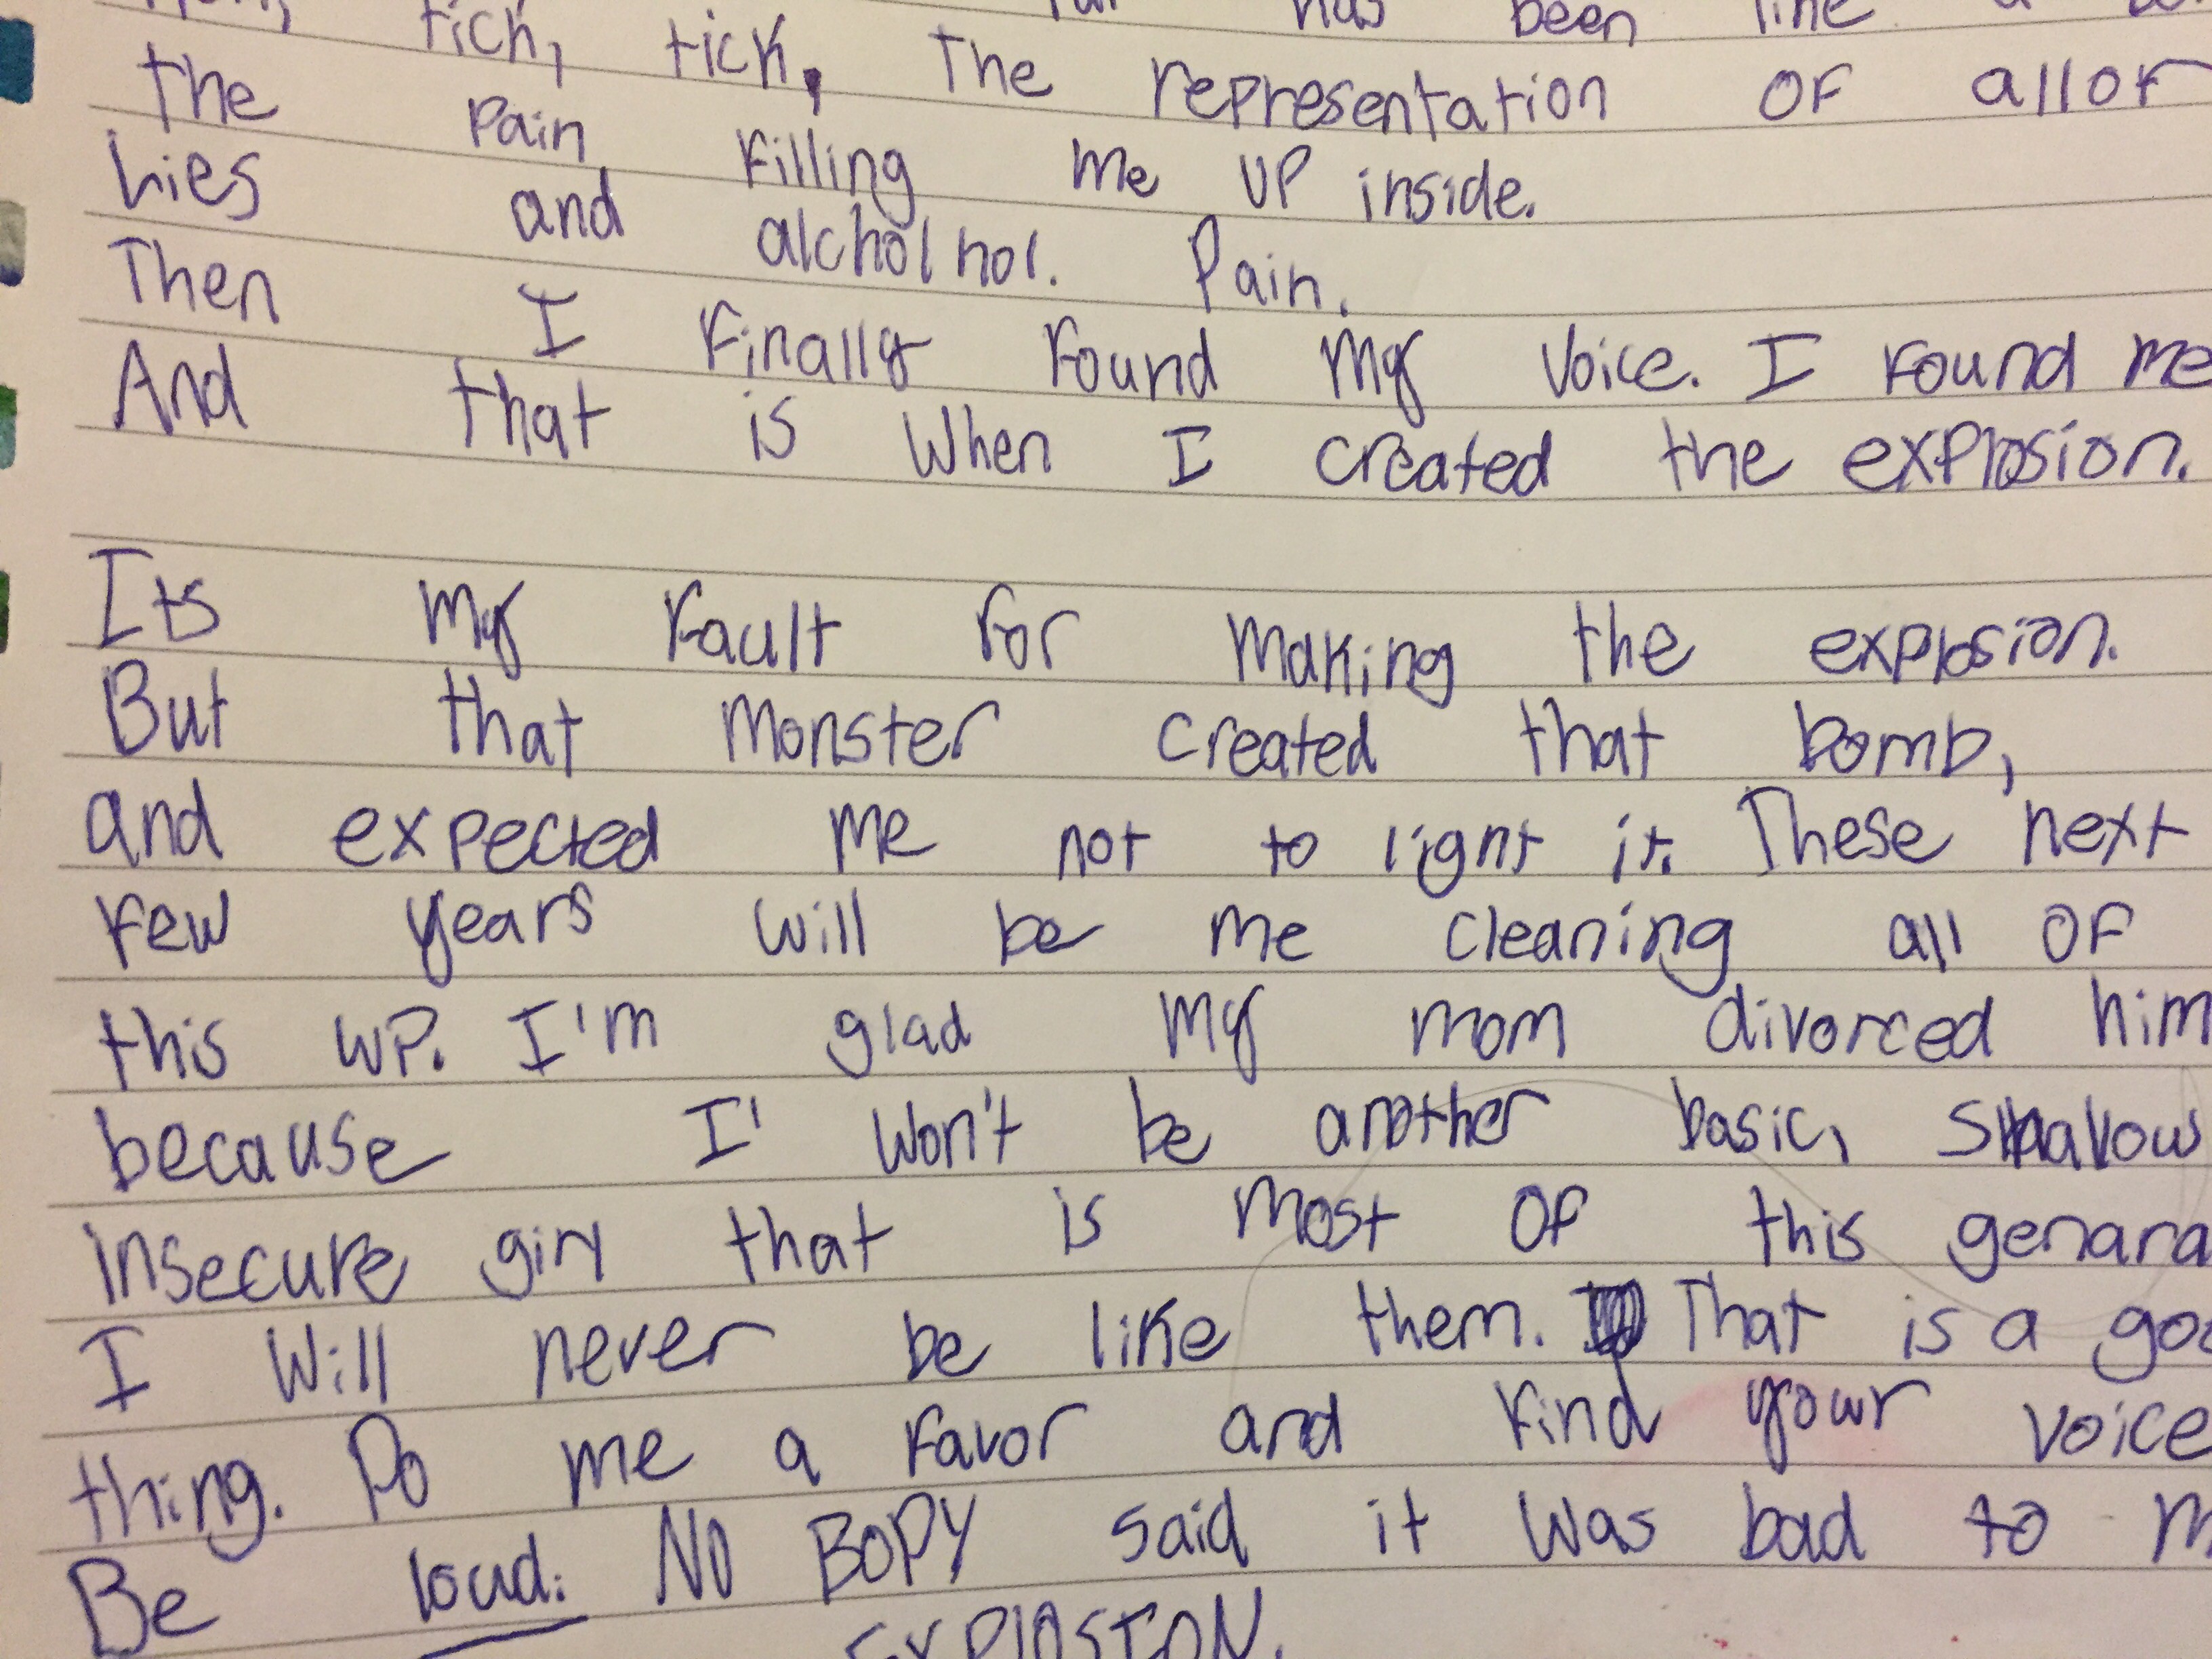 tick, tick, has been like a
tick, The representation OF all of
the Pain Filling me UP inside.
Lies and alcholhol. Pain.
Then I Finally Found My Voice. I Found me
And that is When I created the explosion.
Its My Fault For Making the explosion.
But that Monster created that bomb,
and expected Me not to light it. These next
Few years will be Me cleaning all OF
this UP. I'm glad My mom divorced him
because I' won't be another basic, shallow
insecure girl that is Most OF this genara
I Will never be like them. That is a goo
thing. Do me a Favor and Find your voice
Be loud. NO BODY said it Was bad to m
EXPLOSION.